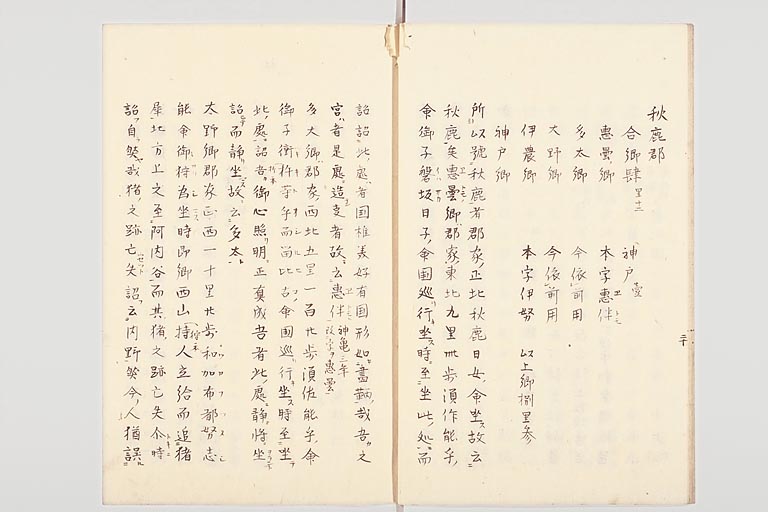 秋鹿郡
合郷肆 里十二 神戸壹
惠曇郷 本字惠伴
多太郷 今依前用
大野郷 今依前用
伊農郷 本字伊努 以上郷捌里参
神戸郷
所以號秋鹿者郡家正北秋鹿日女命坐故云
秋鹿矣惠曇郷郡家東北九里卌歩須作能乎
命御子磐坂日子命国巡行坐時至坐此処而
詔詔此處者国椎美好有国形如畫鞆哉吾之
宮者是處造支者故云惠伴 神亀三年改字惠曇
多太郷郡家西北五里一百廿歩須佐能乎命
御子衝杵等乎而留比古命国巡行坐時至坐
此處詔吾御心照明正真成吾者此處静将坐
詔而静坐故云多太
大野郷郡家正西一十里廿歩和加布都努志
能命御狩為坐時即郷西山持人立給而追猪
犀北方上之至阿内谷而其猪之跡亡失尒時
詔自然哉猪之跡亡失詔云内野然今人猶誤
三十